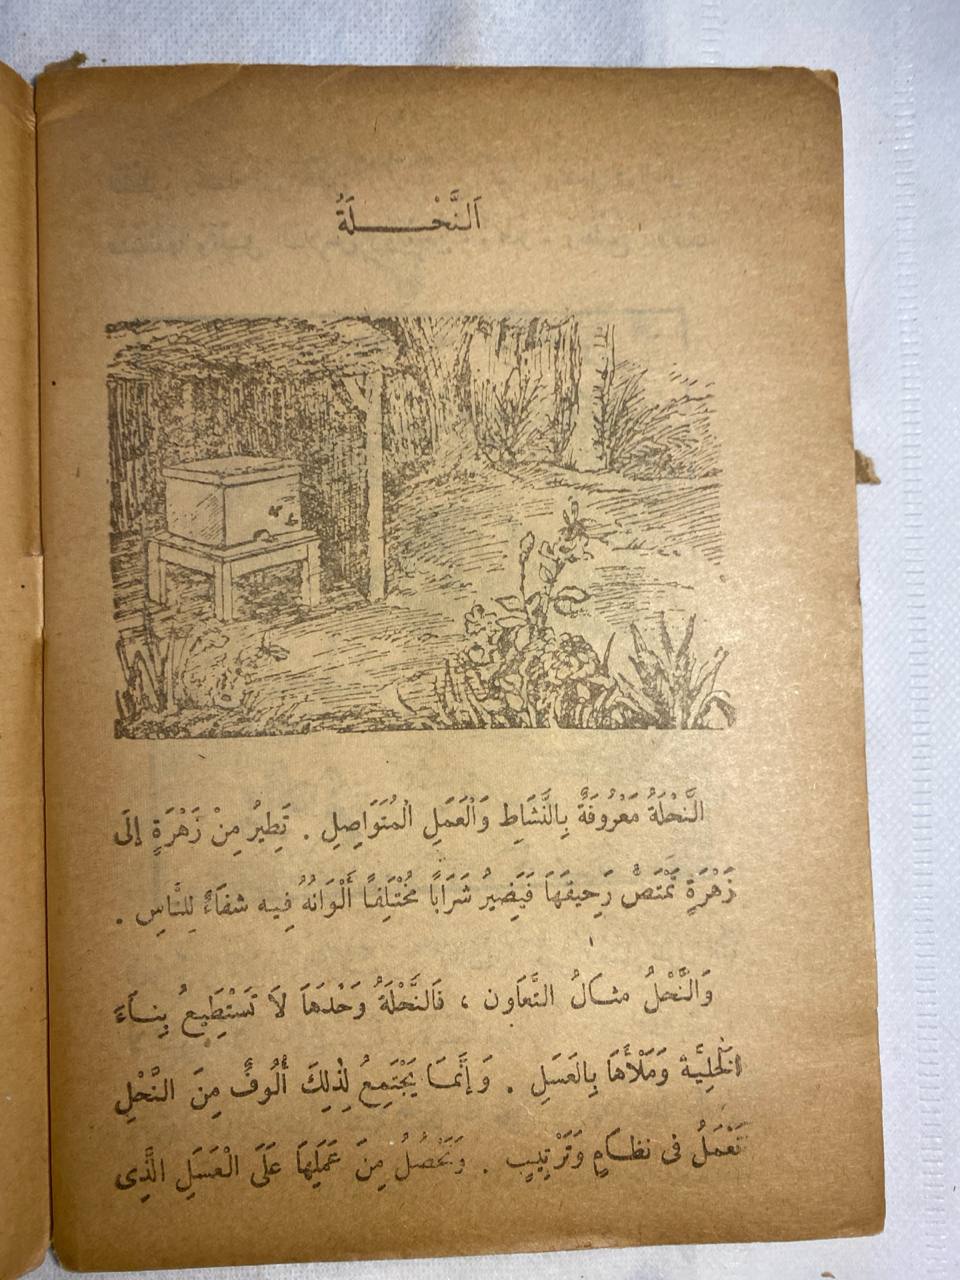 اَلنَّحْـــلَةُ
النَّحْلَةُ مَعْرُوفَةٌ بِالنَّشَاطِ وَالْعَمَلِ الْمُتَوَاصِلِ . تَطِيرُ مِنْ زَهْرَةٍ إلَى
زَهْرَةٍ تَمْتَصُّ رَحِيقَهَا فَيَصِيرُ شَرَابًا مُخْتَلِفًا أَلْوَانُهُ فِيه شفَاءٌ لِلنَّاسِ .
وَالنَّحْلُ مثـالُ التَّعَاون ، فَالنَّحْلَةُ وَحْدَهَا لَا تَسْتَطِيعُ بِنـاءَ
الْخَلِيَّة وَمَلْأَهَا بِالعَسَلِ . وَإنَّمـا يَجْتَمِعُ لِذٰلِكَ أُلُوفٌ مِنَ النَّحْلِ
تَعْمَلُ فى نظَـامٍ وَتَرْتِيبٍ . وَيَحْصُلُ مِنَ عَمَلِهَا عَلَى الْعَسَلِ الَّذِى